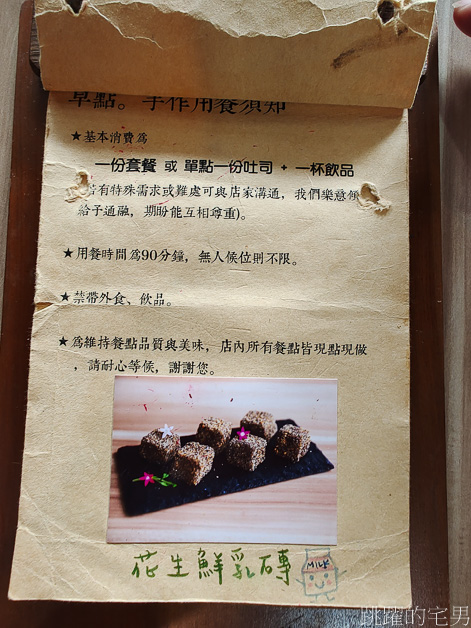 草點。手作用餐須知
★基本消費為
一份套餐 或 單點一份吐司 + 一杯飲品
若有特殊需求或難處可與店家溝通，我們樂意
給予通融，期盼能互相尊重)。
★用餐時間為90分鐘，無人候位則不限。
★禁帶外食、飲品。
★為維持餐點品質與美味，店內所有餐點皆現點現做
，請耐心等候，謝謝您。
花生鮮乳磚
MILK
跳躍的宅男